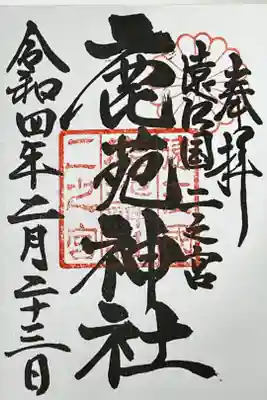 奉拝
遠江国二之宮
鹿苑神社
令和四年二月二十三日